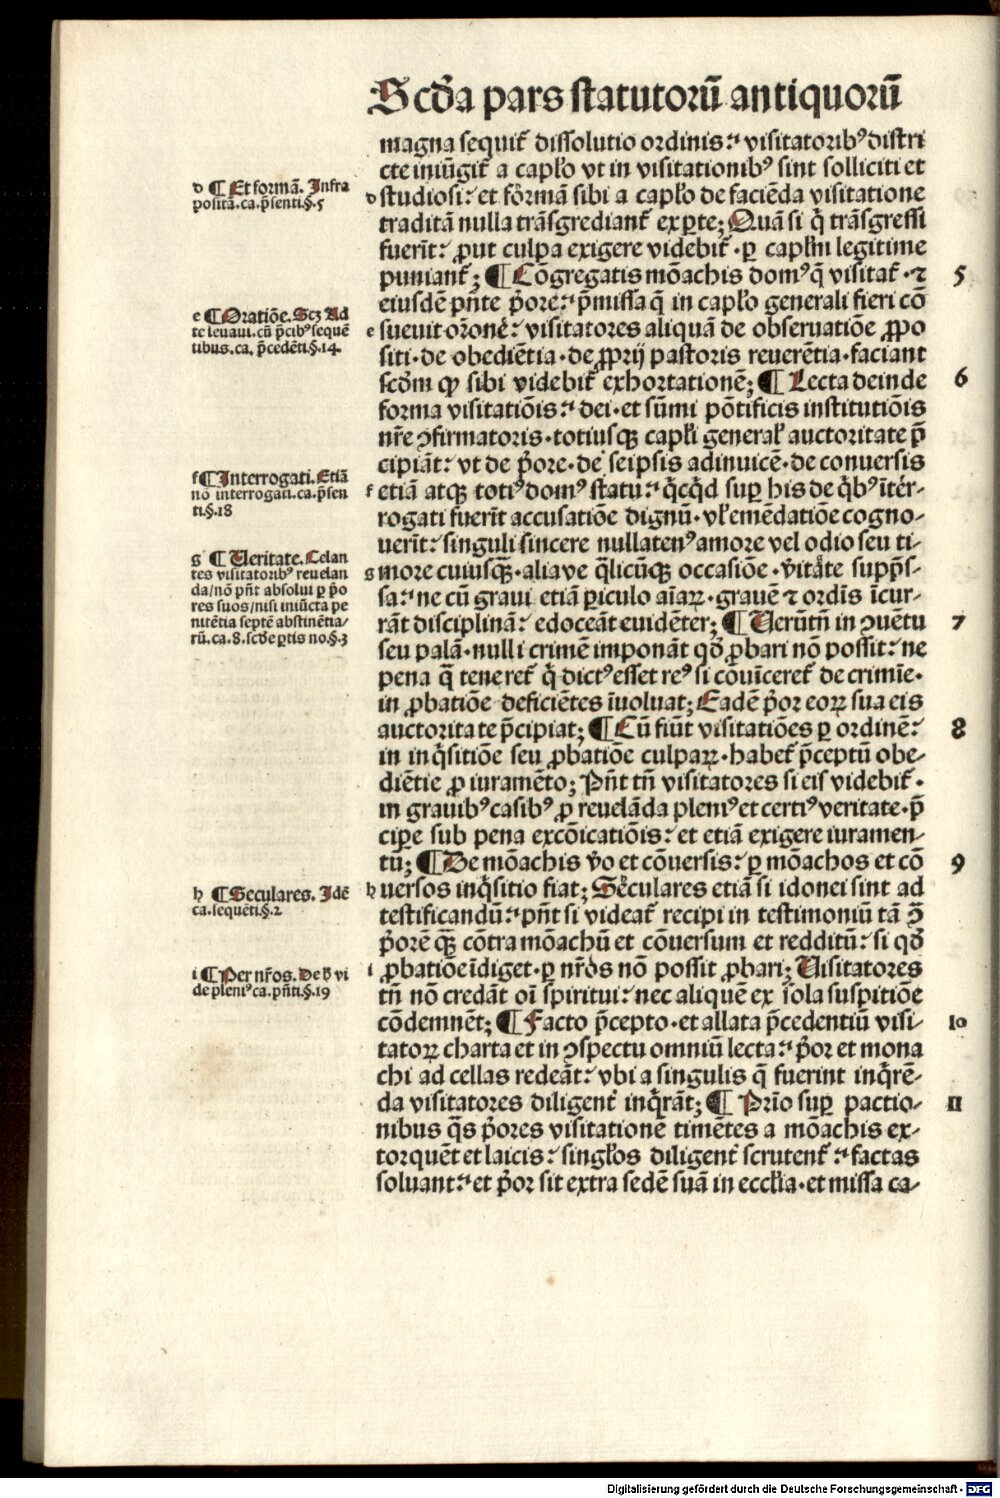 Scd̄a pars statutorū antiquorū
magna sequit̄ dissolutio ordinis: visitatoribꝰ distri
cte iniūgit̄ a capl'o vt in visitationibꝰ sint solliciti et
d studiosi: et formā sibi a capl'o de faciēda visitatione
traditā nulla trāsgrediant̄ ex ꝑte; Quā si q̄ trāsgressi
fuerīt: ꝓut culpa exigere videbit̄ · ꝑ caplm̄ legitime
puniant̄; ¶ Cōgregatis mōachis domꝰ q̄ visitat̄ · ⁊ 5
eiusdē pn̄te p̄ore: p̄missa q̄ in capl'o generali fieri cō
e sueuit or̄one: visitatores aliquā de obseruatiōe ꝓpo
siti · de obediētia · de ꝓprij pastoris reuerētia · faciant
scd̄m ꝙ sibi videbit̄ exhortationē; ¶ Lecta deinde 6
forma visitatiōis: dei · et sūmi pōtificis institutiōis
nr̄e ꝯfirmatoris · totiusqꝫ capl'i general' auctoritate p̄
cipiāt: vt de p̄ore · de seipsis adinuicē · de conuersis
f etiā atqꝫ totiꝰ domꝰ statu: q̄cq̄d suꝑ his de q̄bꝰ īter-
rogati fuerīt accusatiōe dignū · vl' emēdatiōe cogno-
uerīt: singuli sincere nullatenꝰ amore vel odio seu ti-
g more cuiusqꝫ · aliave q̄licūqꝫ occasiōe · v̄itāte supp̄s-
sa: ne cū graui etiā ꝑiculo aīaꝝ · grauē ⁊ ordīs īcur-
rāt disciplinā: edoceāt euidēter; ¶ Uerūtn̄ in ꝯuētu 7
seu palā · nulli crimē imponāt qd̄ ꝓbari nō possit: ne
pena q̄ teneret̄ q̄ dictꝰ esset reꝰ si cōuīceret̄ de crimīe ·
in ꝓbatiōe deficiētes īuoluat; Eadē p̄or eoꝝ sua eis
auctoritate p̄cipiat; ¶ Cū fiūt visitatiōes ꝑ ordinē: 8
in inq̄sitiōe seu ꝓbatiōe culpaꝝ · habet̄ p̄ceptū obe-
diētie ꝓ iuramēto; Pn̄t tn̄ visitatores si eis videbit̄ ·
in grauibꝰ casibꝰ ꝓ reuelāda pleniꝰ et certiꝰ veritate · p̄
ciꝑe sub pena excōicatiōis: et etiā exigere iuramen-
tū; ¶ De mōachis v̄o et cōuersis: ꝑ mōachos et cō 9
h uersos inq̄sitio fiat; Seculares etiā si idonei sint ad
testificandū: pn̄t si videat̄ recipi in testimoniū tā ꝯ̄
p̄orē qꝫ cōtra mōachū et cōuersum et redditū: si qd̄
i ꝓbatiōe īdiget · ꝑ nr̄os nō possit ꝓbari; Uisitatores
tn̄ nō credāt oī spiritui: nec aliquē ex sola suspitiōe
cōdemnēt; ¶ Facto p̄cepto · et allata p̄cedentiū visi- 10
tatoꝝ charta et in ꝯspectu omniū lecta: p̄or et mona
chi ad cellas redeāt: vbi a singulis q̄ fuerint inq̄rē-
da visitatores diligent̄ inq̄rāt; ¶ Prīo suꝑ pactio- 11
nibus q̄s p̄ores visitationē timētes a mōachis ex-
torquēt et laicis: singl'os diligent̄ scrutent̄: factas
soluant: et p̄or sit extra sedē suā in eccl'ia · et missa ca-
d ¶ Et formā. Infra
positā. ca. p̄senti. §. 5
e ¶ Oratiōe. Scꝫ Ad
te leuaui. cū p̄cibꝰ sequē
tibus. ca. p̄cedēti. §. 14.
f ¶ Interrogati. Etiā
nō interrogati. ca. p̄sen
ti. §. 18
g ¶ Ueritate. Celan
tes visitatoribꝰ reuelan
da / nō pn̄t absolui ꝑ p̄o
res suos / nisi iniūcta pe
nitētia septē abstinētia-
rū. ca. 8. scd̄e ꝑtis no. §. 3
h ¶ Seculares. Idē
ca. sequēti. §. 2
i ¶ Per nr̄os. De h̄ vi
de pleniꝰ ca. pn̄ti. §. 19
Digitalisierung gefördert durch die Deutsche Forschungsgemeinschaft · DFG